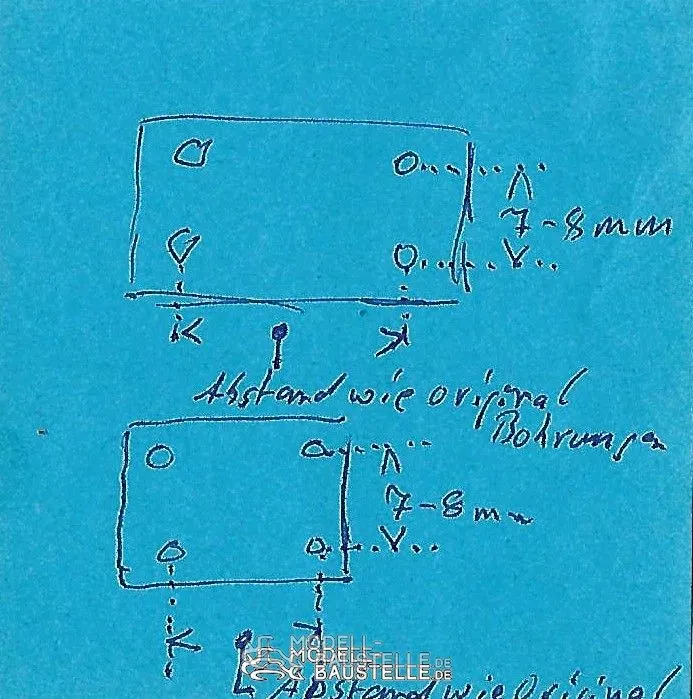 7-8mm
Abstand wie original
Bohrungen
7-8mm
MODELL-
BAUSTELLE.DE
MODELL-
BAUSTELLE.DE
Abstand wie Original